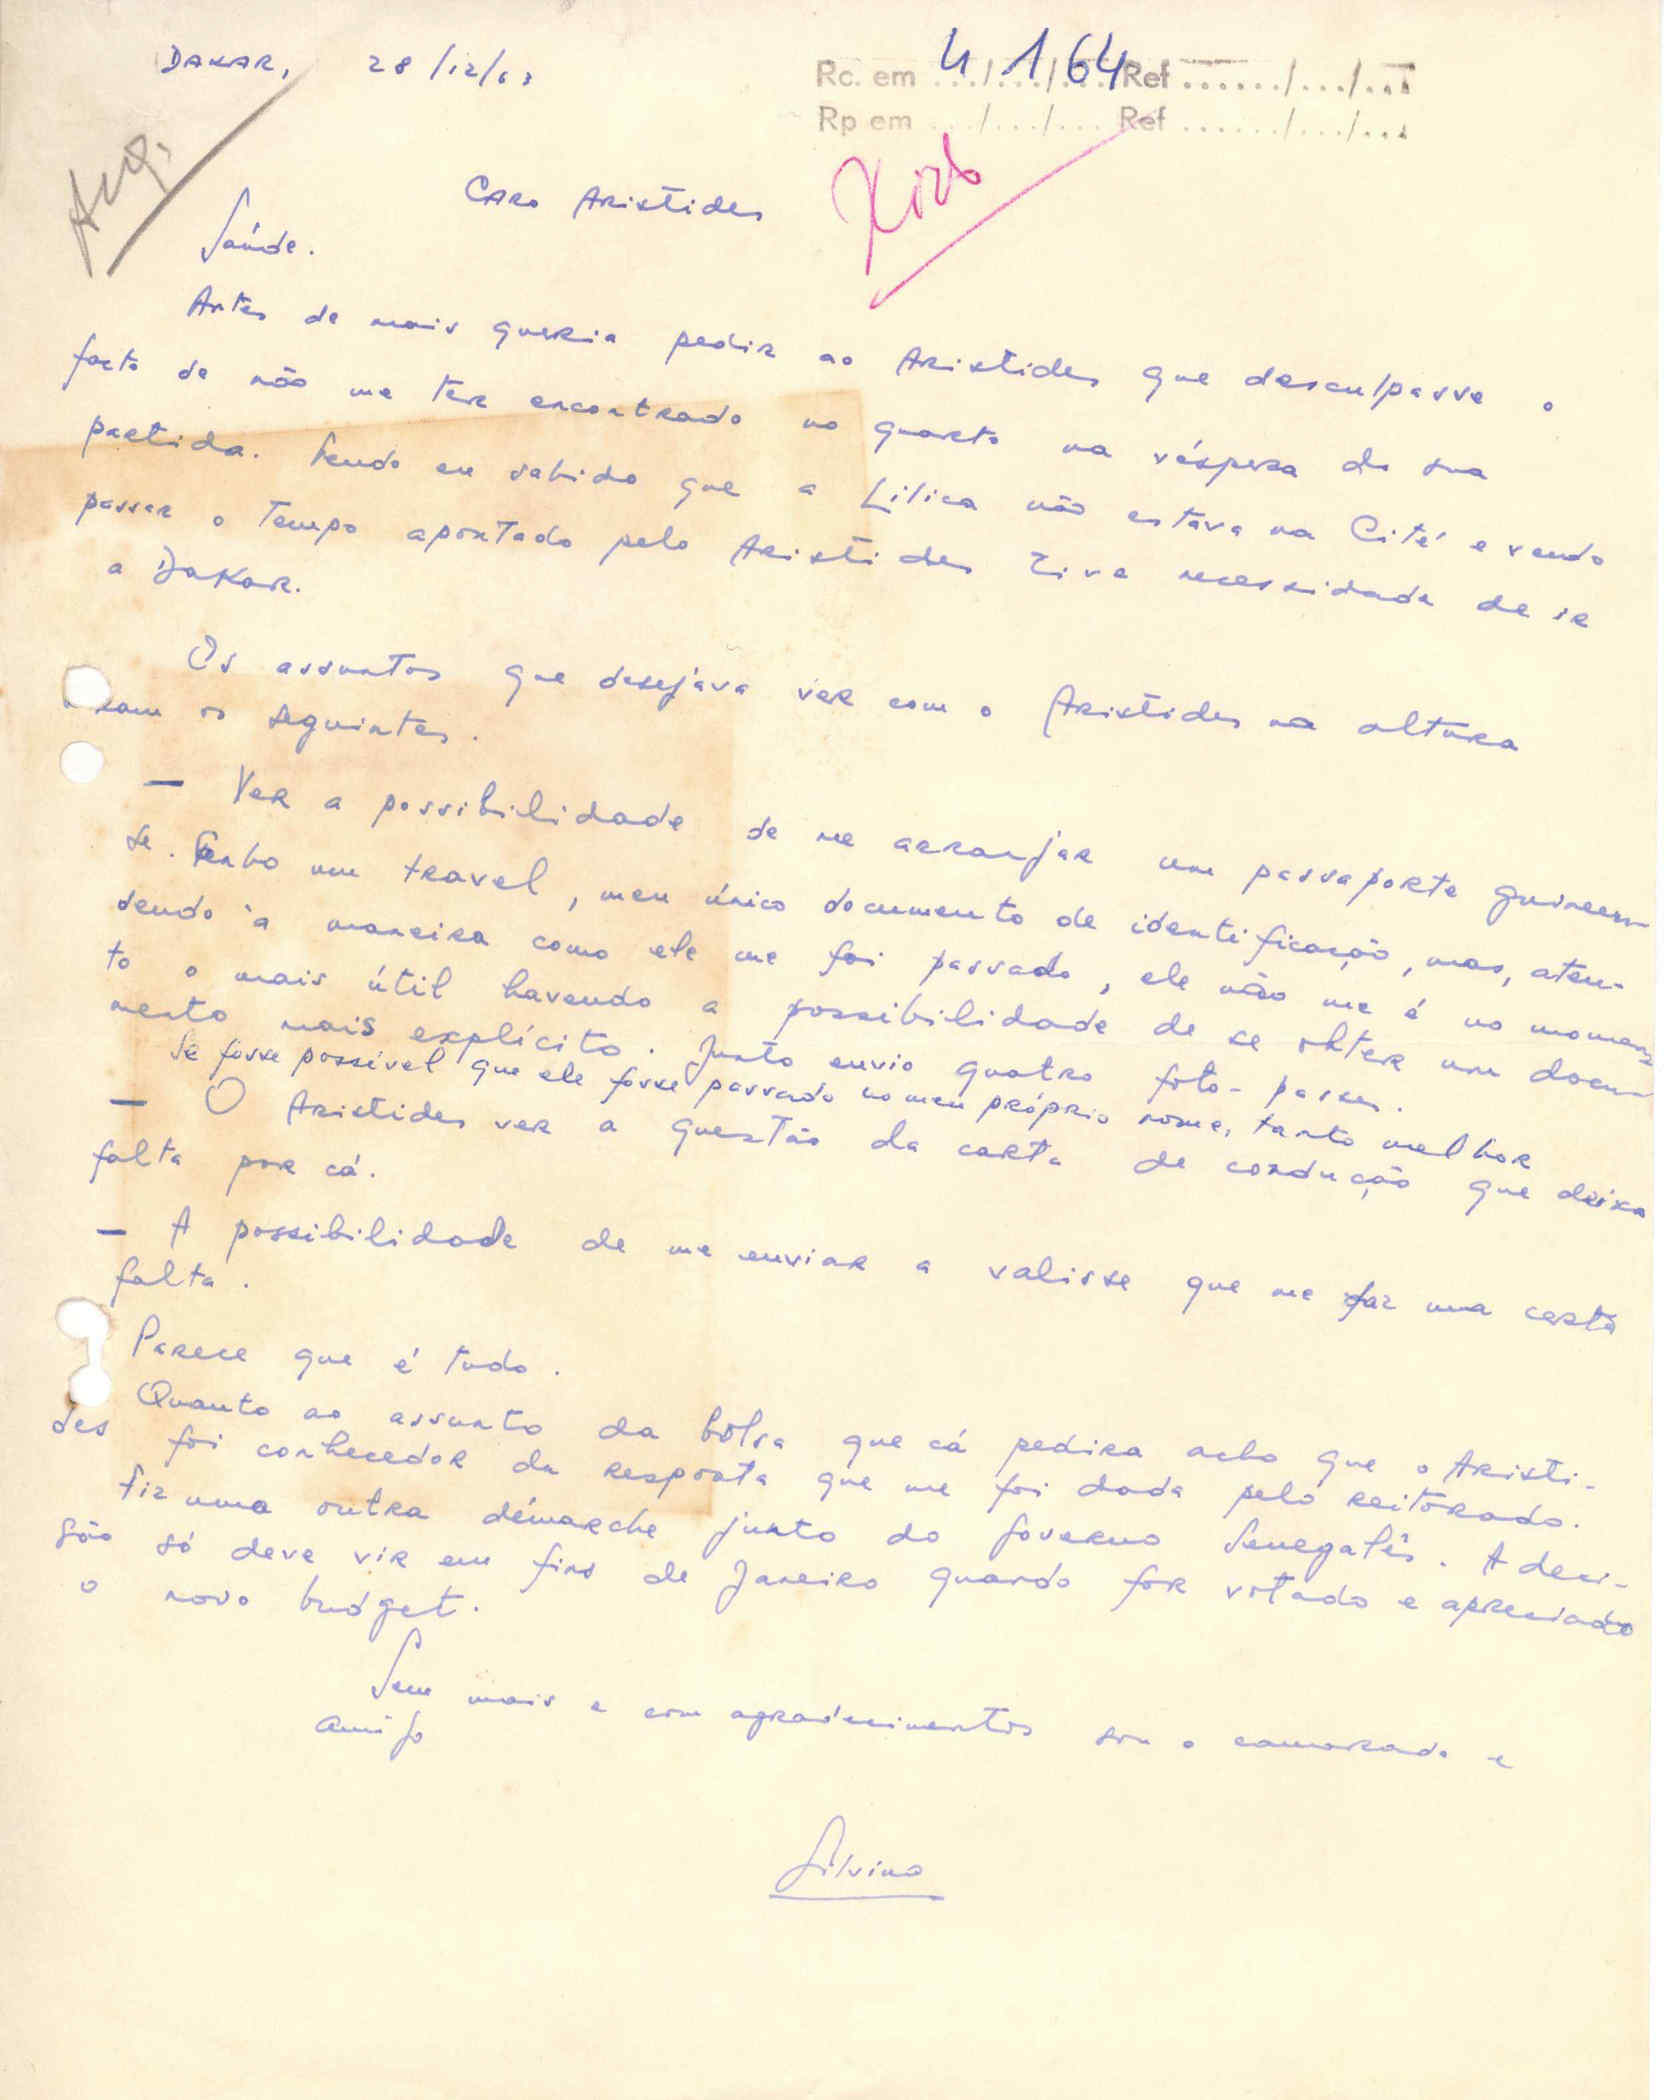 DAKAR, 28/12/63
Rc. em 4/1/64 Ref ....../.../...
Rp em .../.../... Ref ....../.../...
Arq.
CARO Aristides
Saúde.
Antes de mais queria pedir ao Aristides que desculpasse o
facto de não me ter encontrado no quarto na véspera da sua
partida. Tendo eu sabido que a Lilica não estava na Cité e vendo
passar o tempo apontado pelo Aristides tive necessidade de ir
a Dakar.
Os assuntos que desejava ver com o Aristides na altura
eram os seguintes.
— Ver a possibilidade de me arranjar um passaporte guineen-
se. Tenho um travel, meu único documento de identificação, mas, aten-
dendo à maneira como ele me foi passado, ele não me é no momen-
to o mais útil havendo a possibilidade de se obter um docu-
mento mais explícito. Junto envio quatro foto-passes.
Se fosse possível que ele fosse passado no meu próprio nome, tanto melhor
— O Aristides ver a questão da carta de condução que deixa
falta por cá.
— A possibilidade de me enviar a valisse que me faz uma certa
falta.
Parece que é tudo.
Quanto ao assunto da bolsa que cá pedira acho que o Aristi-
des foi conhecedor da resposta que me foi dada pelo reitorado.
Fiz uma outra démarche junto do Governo Senegalês. A deci-
são só deve vir em fins de Janeiro quando for votado e apreciado
o novo budget.
Sem mais e com agradecimentos sou o camarada e
amigo
Silvino